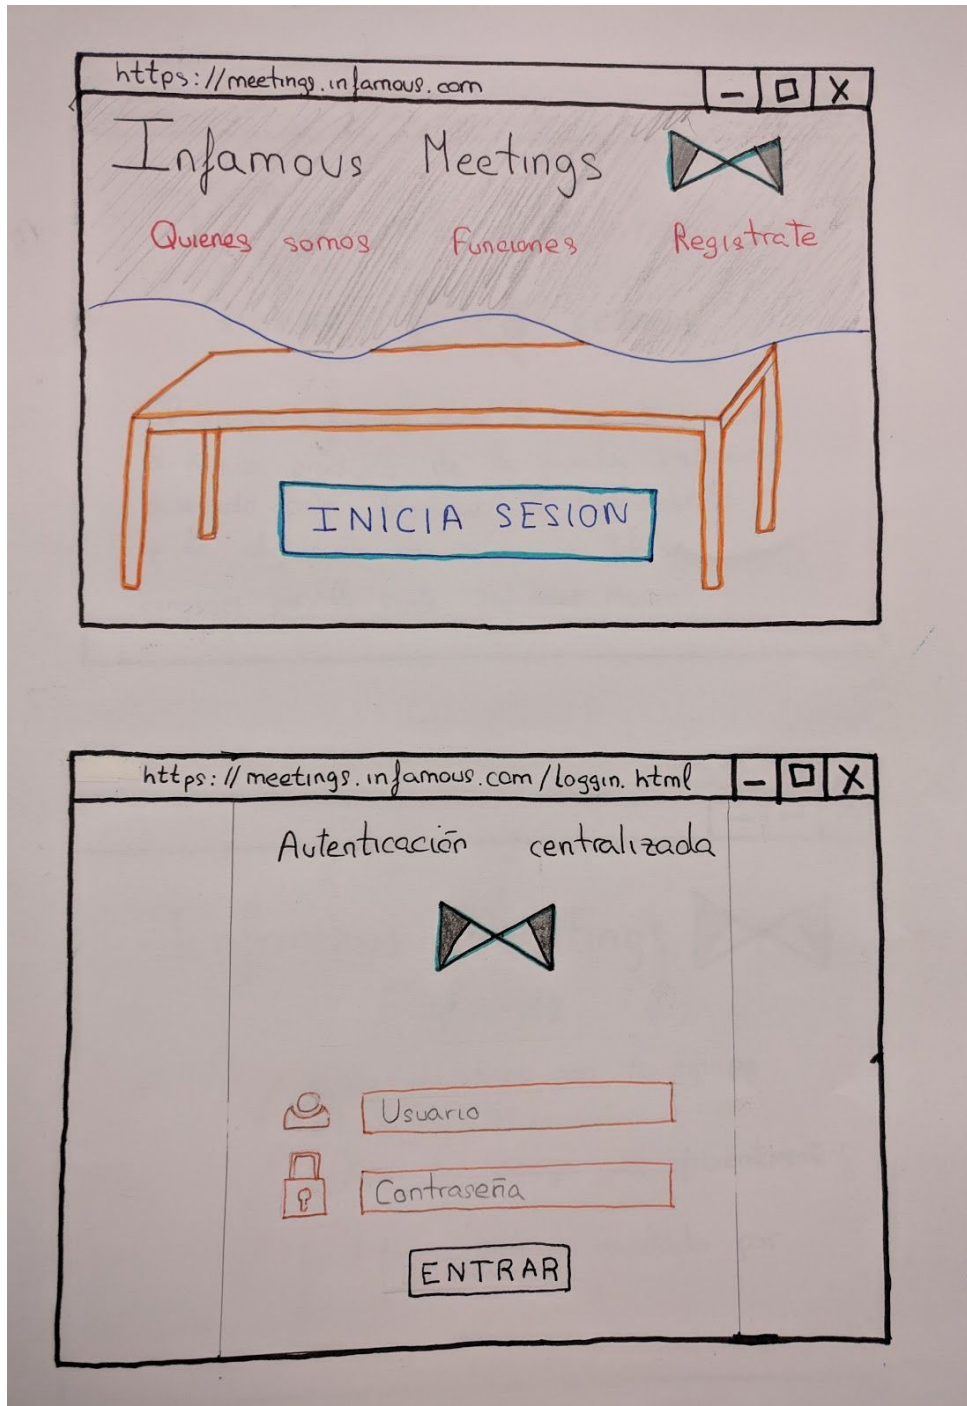 https://meetings.infamous.com
Infamous Meetings
Quienes somos Funciones Registrate
INICIA SESION
https://meetings.infamous.com/loggin.html
Autenticación centralizada
Usuario
Contraseña
ENTRAR